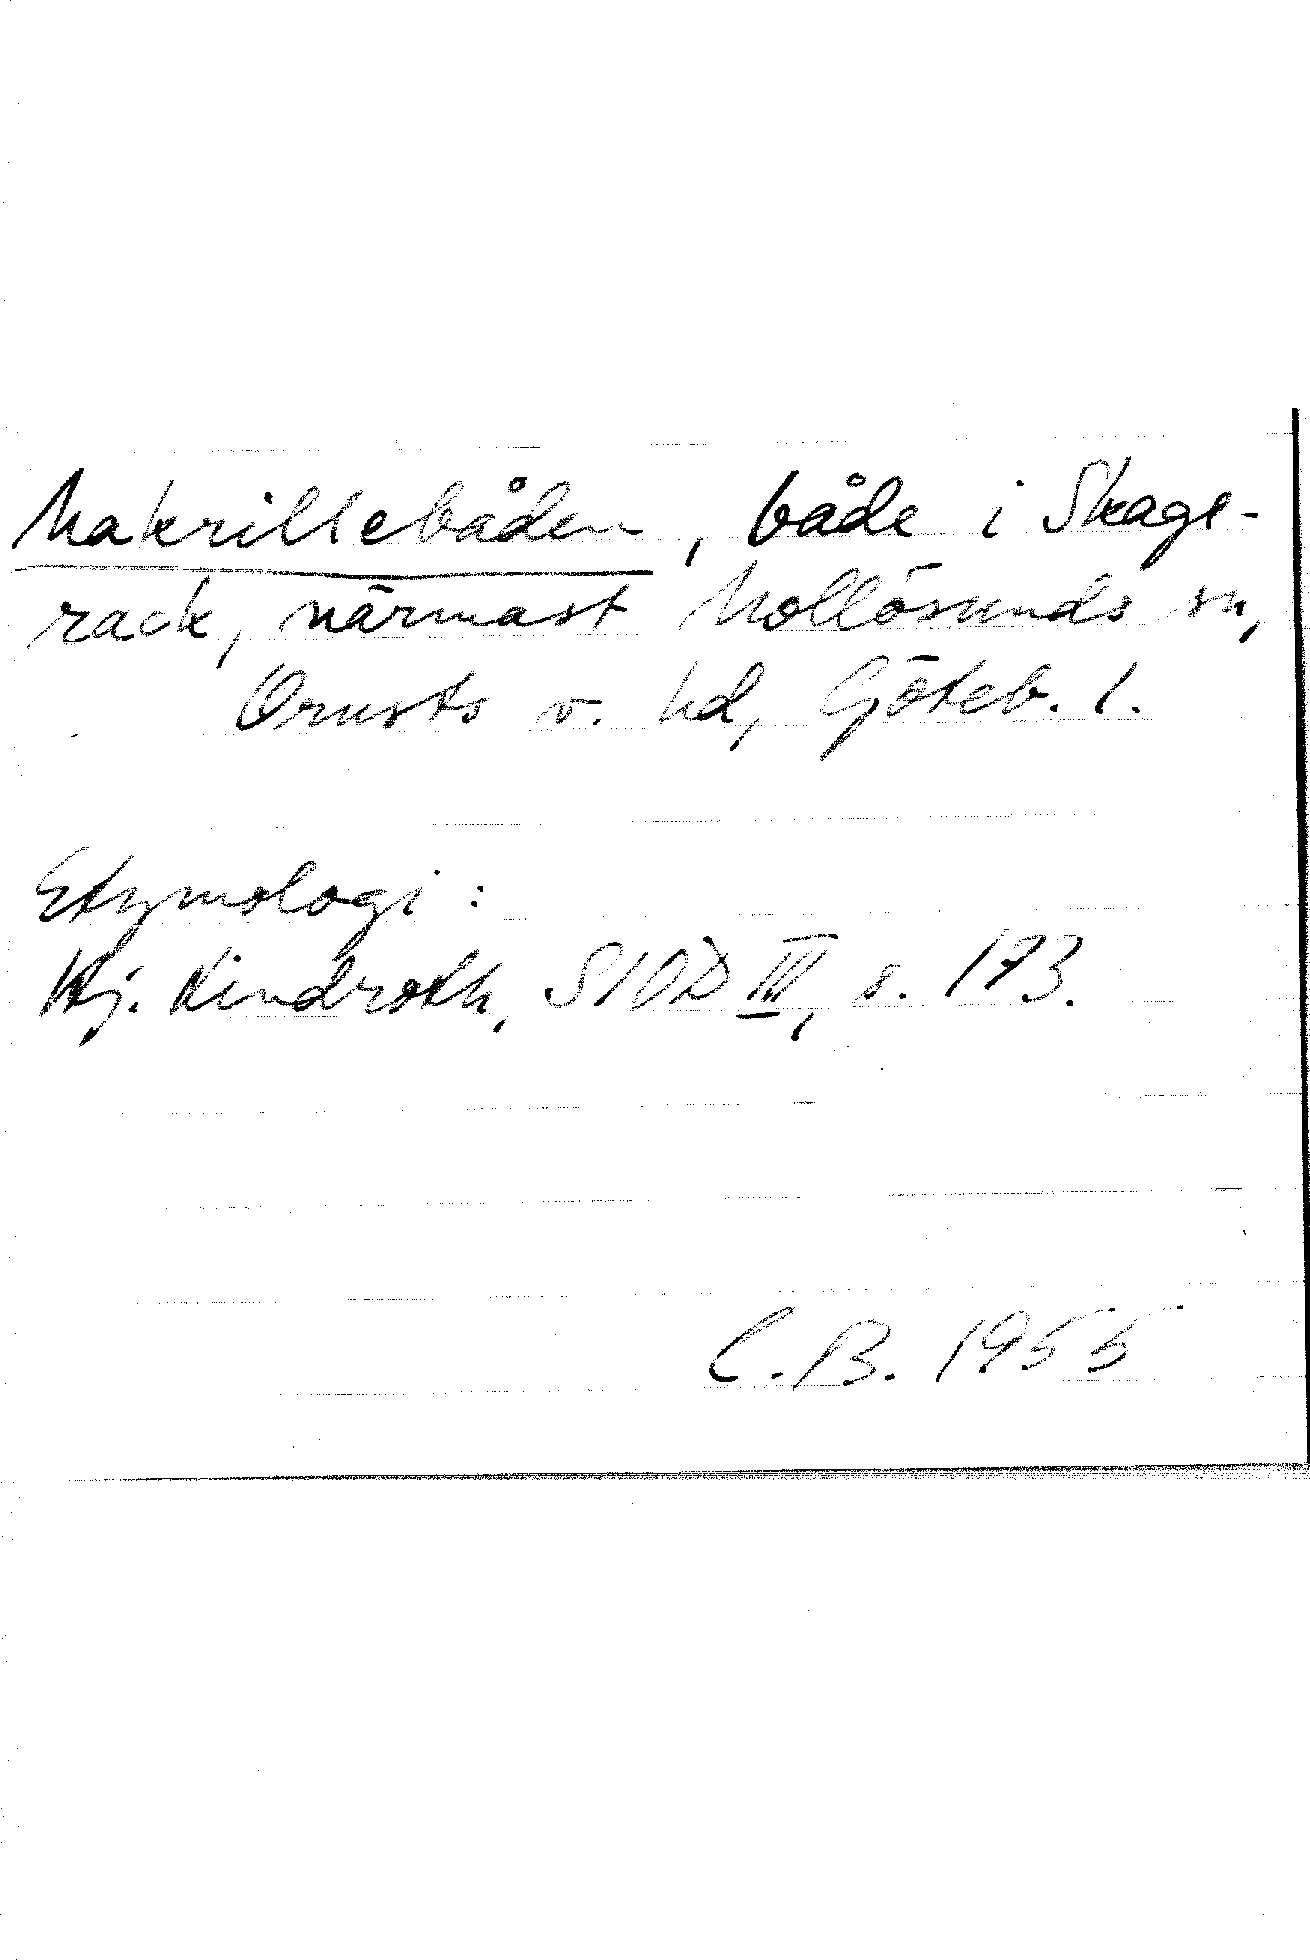 Makrillebåden, både i Skage-
rack, närmast Mollösunds sn,
Orusts v. hd, Göteb. l.
Etymologi:
Hj. Lindroth, SIOD III, s. 173.
C.B. 1955